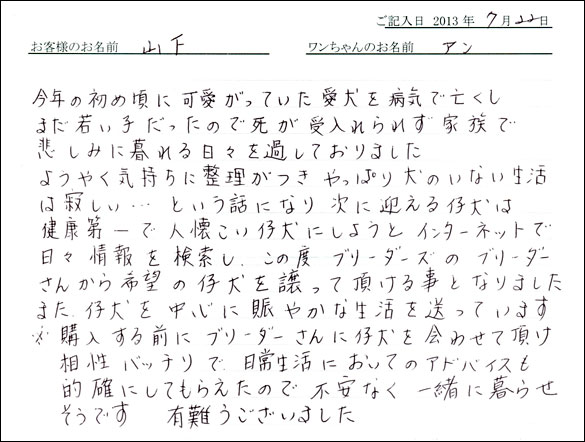 ご記入日 2013 年 7 月 22 日
お客様のお名前 山下 ワンちゃんのお名前 アン
今年の初め頃に可愛がっていた愛犬を病気で亡くし
まだ若い子だったので死が受入れられず家族で
悲しみに暮れる日々を過しておりました
ようやく気持ちに整理がつきやっぱり犬のいない生活
は寂しい… という話になり次に迎える仔犬は
健康第一で人懐こい仔犬にしようとインターネットで
日々情報を検索し、この度ブリーダーズのブリーダー
さんから希望の仔犬を譲って頂ける事となりました
また、仔犬を中心に賑やかな生活を送っています
※購入する前にブリーダーさんに仔犬を会わせて頂け
相性バッチリで、日常生活においてのアドバイスも
的確にしてもらえたので不安なく一緒に暮らせ
そうです 有難うございました